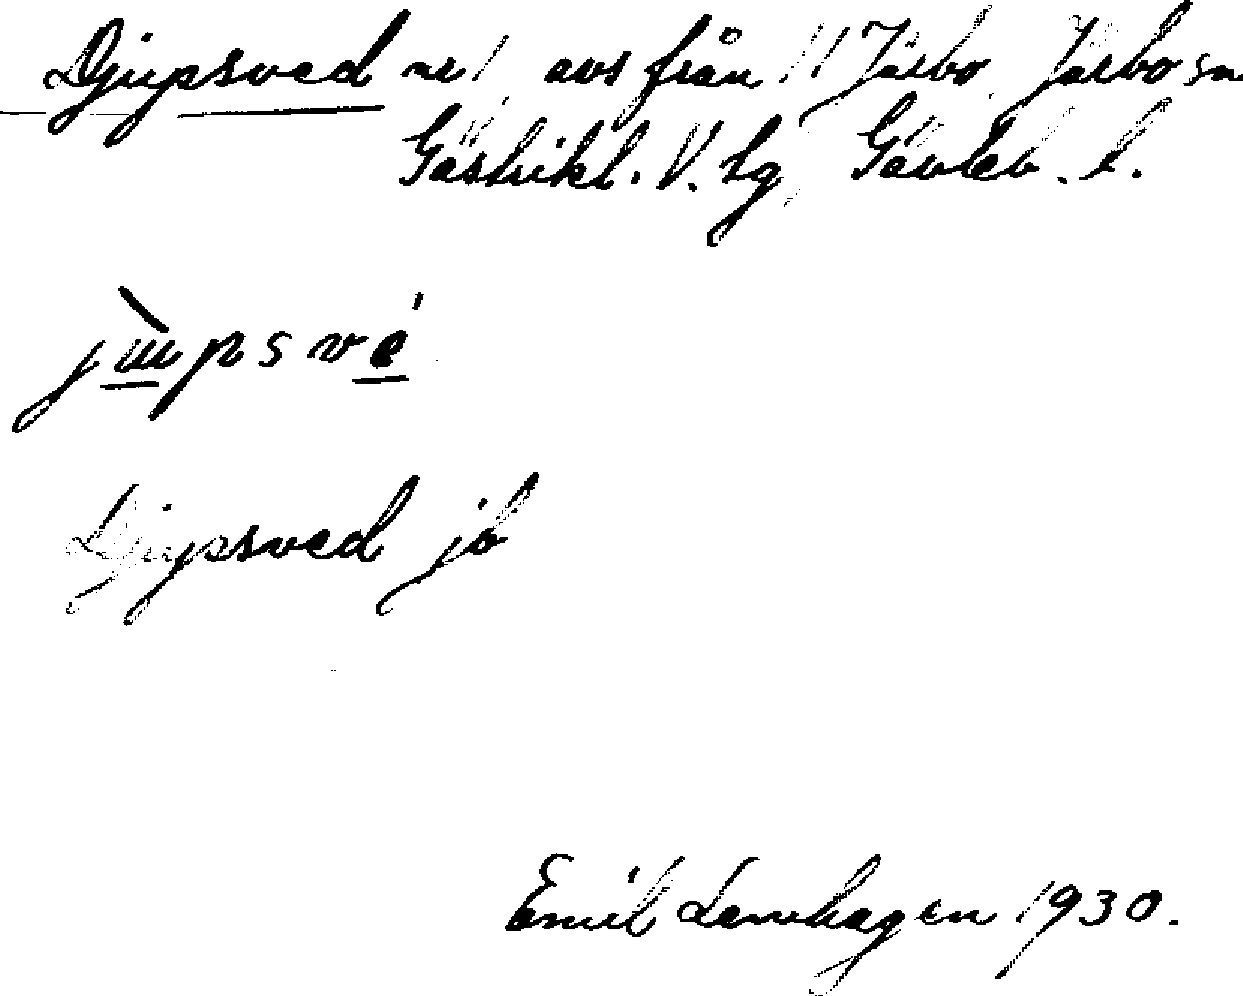 Djupsved nr 1 avs från 11 Järbo Järbo sn
Gästrikl. V. tg Gävleb. l.
jɯ̀psvé
Djupsved jb
Emil Lennhagen 1930.